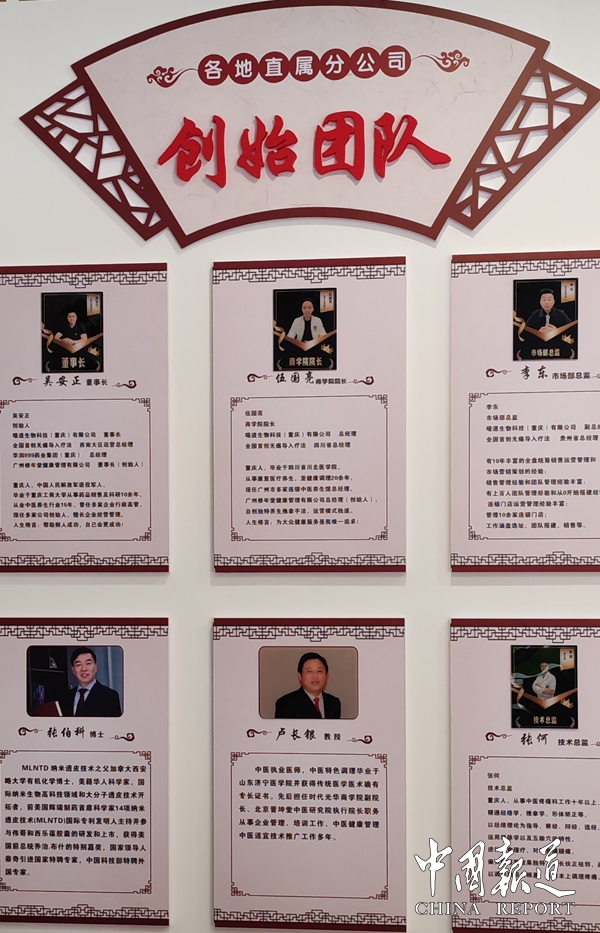 各地直属分公司
创始团队
董事长
吴安正 董事长
吴安正
创始人
喵道生物科技(重庆)有限公司 董事长
全国首创无痛导入疗法 西南大区运营总经理
华润999药业集团(重庆) 总经理
广州修年堂健康管理有限公司 董事长(创始人)
重庆人，中国人民解放军退役军人，
毕业于重庆工商大学从事药品销售及科研10余年，
从业中医养生行业15年，曾任多家企业行政高管，
现任多家公司创始人，擅长企业经营管理。
人生格言：帮助别人成功，自己会更成功!
商学院院长
伍国亮 商学院院长
伍国亮
商学院院长
喵道生物科技(重庆)有限公司 总经理
全国首创无痛导入疗法 四川省总经理
重庆人，毕业于四川省川北医学院，
从事康复医疗养生，亚健康调理20余年，
现任广州市多家连锁中医养生馆总经理，
广州修年堂健康管理有限公司总经理(创始人)，
自创独特养生推拿手法、运营模式轨道。
人生格言：为大众健康服务是我唯一追求!
市场部总监
李东 市场部总监
李东
市场部总监
喵道生物科技(重庆)有限公司 副总
全国首创无痛导入疗法 贵州省总经理
有10年丰富的全盘统筹销售运营管理和
市场营销策划的经验;
销售管理经验和团队管理经验丰富;
有上百人团队管理经验和从0开始搭建经
连锁门店运营管理经验丰富;
管理10余家连锁门店;
工作涵盖选址、团队搭建、销售等。
张伯科 博士
MLNTD纳米透皮技术之父加拿大西安
略大学有机化学博士、美籍华人科学家、国
际纳米生物高科技领域和大分子透皮技术开
拓者，前美国辉瑞制药首席科学家14项纳米
透皮技术(MLNTD)国际专利发明人主持并参
与伟哥和西乐葆胶囊的研发和上市，获得美
国前总统乔治.布什的特别嘉奖，国家领导人
蔡奇引进国家特聘专家、中国科技部特聘外
国专家。
卢长银 教授
中医执业医师，中医特色调理毕业于
山东济宁医学院并获得传统医学医术确有
专长证书。先后担任时代光华商学院副院
长、北京普坤堂中医研究院执行院长职务
从事企业管理、培训工作、中医健康管理
中医适宜技术推广工作多年。
技术总监
张何 技术总监
张何
技术总监
重庆人，从事中医疼痛科工作十年以上，
精通经络学，推拿学，形体矫正等，
以经络理论为指导，察经、辩经、选经、
中国报道
CHINA REPORT